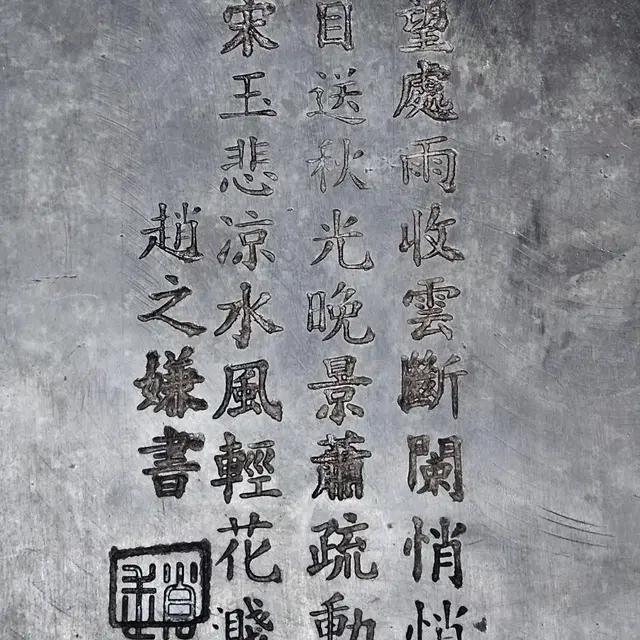 望處雨收雲斷闌悄悄
目送秋光晚景蕭疏動
宋玉悲涼水風輕花
趙之嫌書